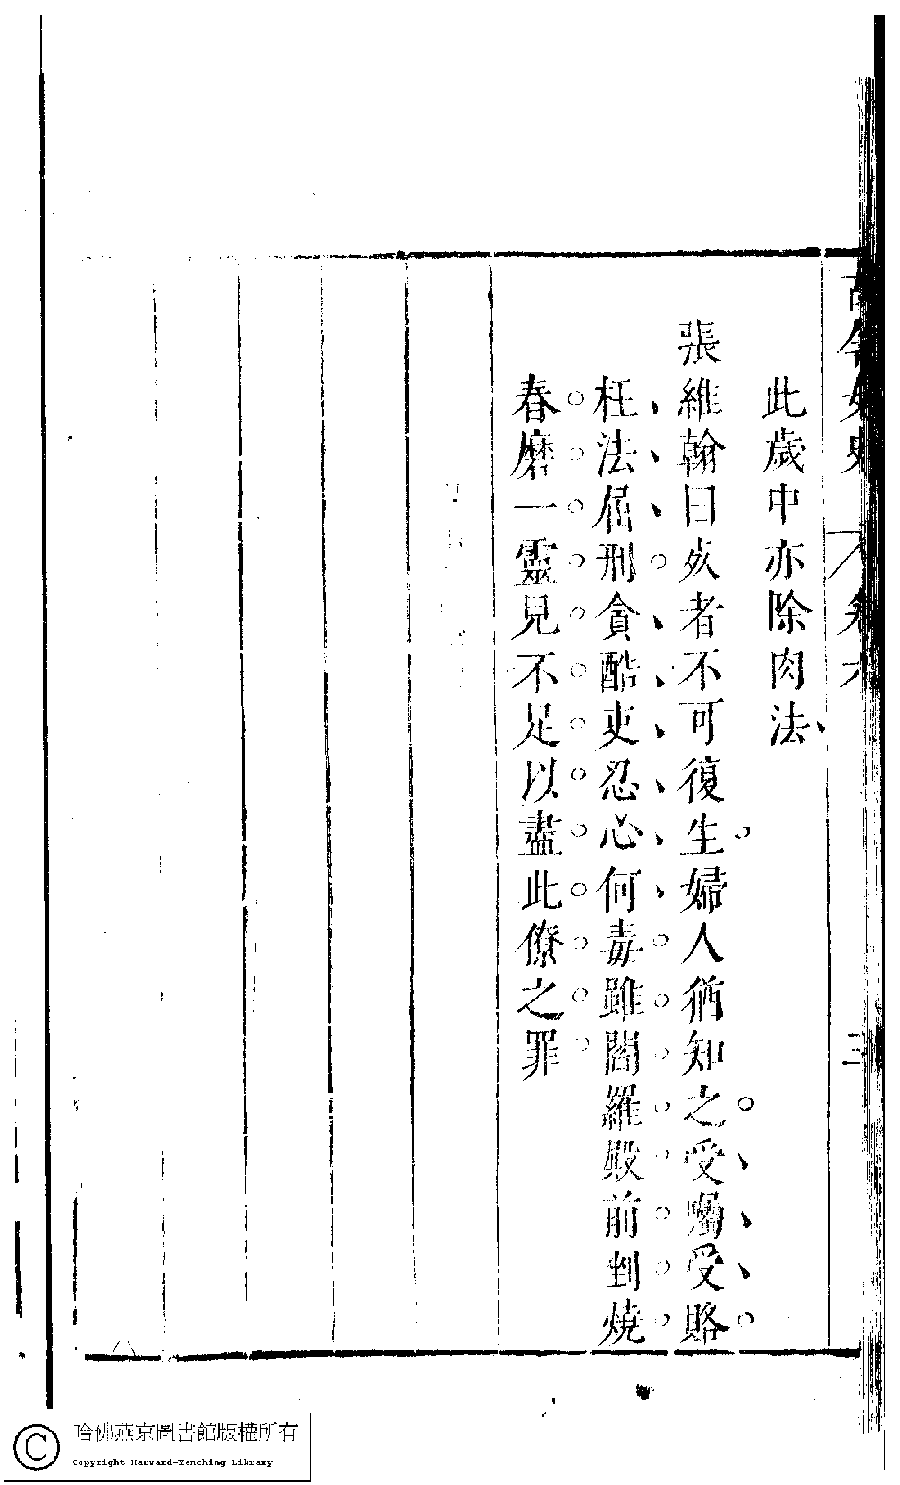 古今女史 卷六 三
此歲中亦除肉法
張維翰曰死者不可復生婦人猶知之受囑受賂
枉法屈刑貪酷吏忍心何毒雖閻羅殿前剉燒
春磨一靈見不足以盡此僚之罪
哈佛燕京圖書館版權所有
Copyright Harvard-Yenching Library